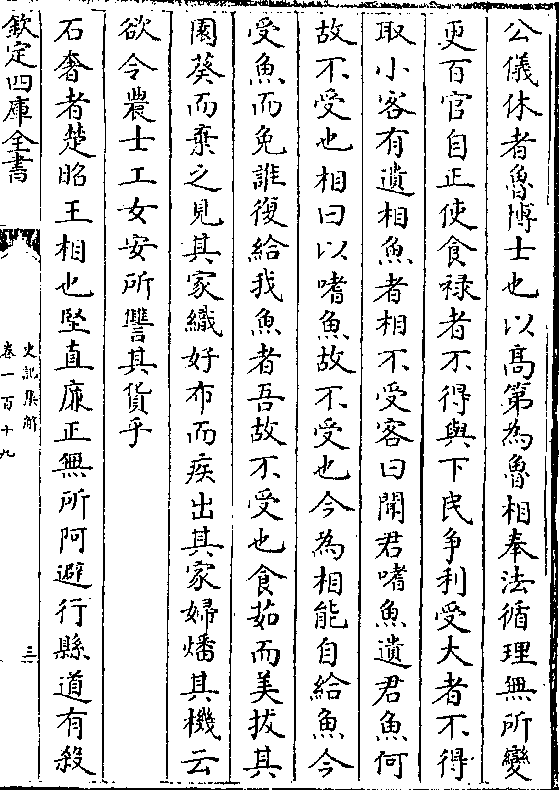 公儀休者魯博士也以高第為魯相奉法循理無所變
更百官自正使食禄者不得與下民争利受大者不得
取小客有遺相魚者相不受客曰聞君嗜魚遺君魚何
故不受也相曰以嗜魚故不受也今為相能自給魚今
受魚而免誰復給我魚者吾故不受也食茹而美拔其
園葵而棄之見其家織好布而疾出其家婦燔其機云
欲令農士工女安所讐其貨乎
石奢者楚昭王相也堅直廉正無所阿避行縣道有殺
欽定四庫全書
史記集解
卷一百十九
三